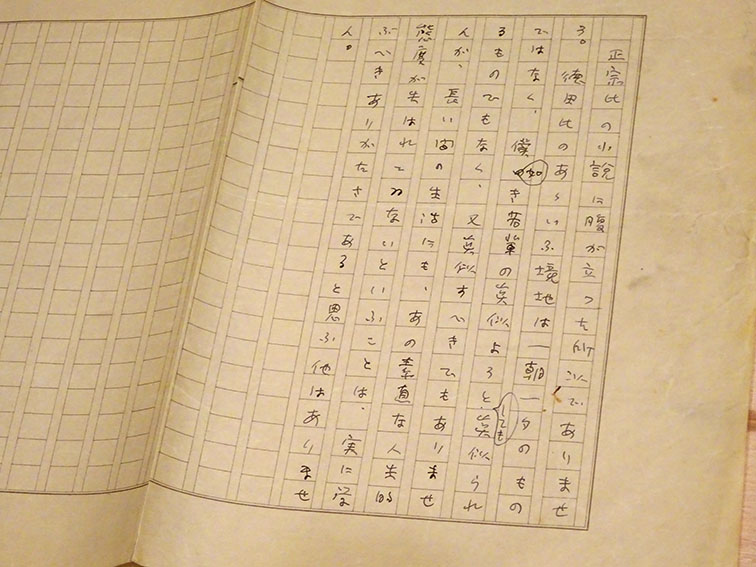 正宗氏の小説に腹が立つた所以でありませ
う。徳田氏のあゝいふ境地は一朝一夕のもの
ではなく、僕如き若輩の真似ようとしても真似られ
るものでもなく、又真似すべきでもありませ
んが、長い間の生活にも、あの素直な人生的
態度が失はれてゐないといふことは、実に学
ぶべきありがたさであると思ふ他はありませ
ん。